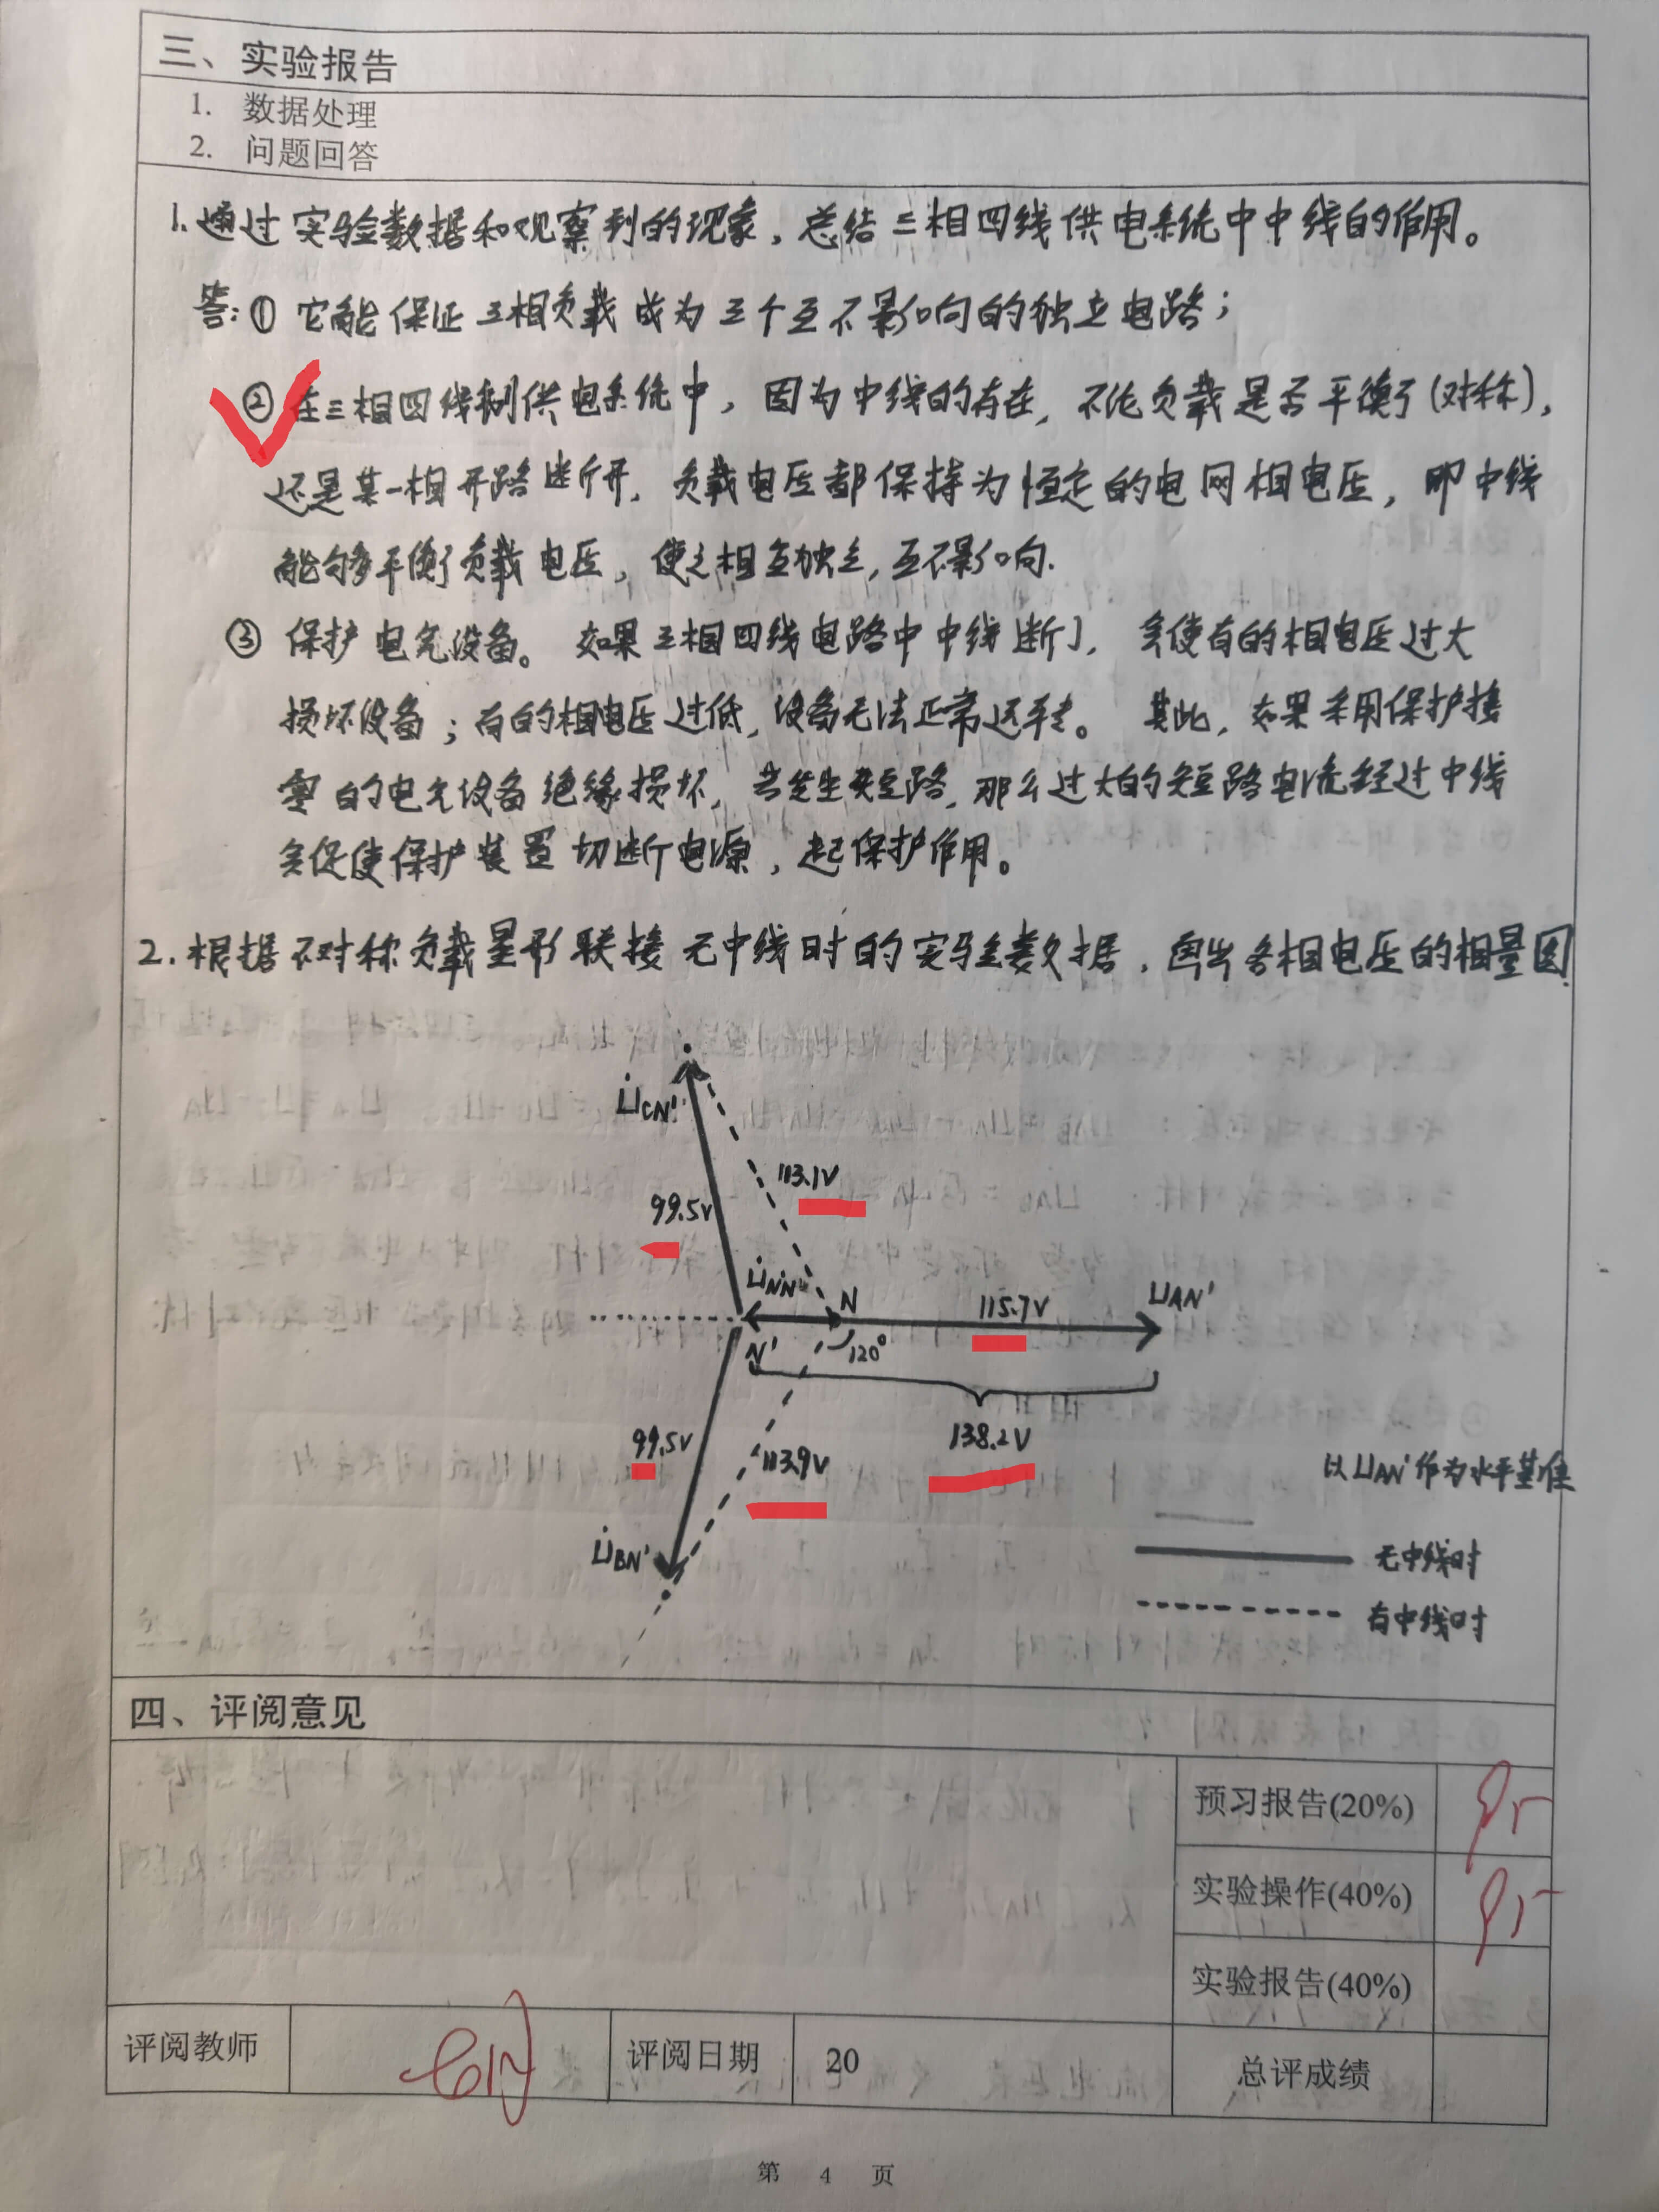 三、实验报告
1. 数据处理
2. 问题回答
1.通过实验数据和观察到的现象，总结三相四线供电系统中中线的作用。
答：① 它能保证三相负载成为三个互不影响的独立电路；
② 在三相四线制供电系统中，因为中线的存在，不论负载是否平衡了(对称)，
还是某一相开路断开，负载电压都保持为恒定的电网相电压，即中线
能够平衡了负载电压，使之相互独立，互不影响.
③ 保护电气设备。如果三相四线电路中中线断了，会使有的相电压过大
损坏设备；有的相电压过低，设备无法正常运转。其此，如果采用保护接
零的电气设备绝缘损坏，当发生短路，那么过大的短路电流经过中线
会促使保护装置切断电源，起保护作用。
2.根据不对称负载星形联接无中线时的实验数据，画出各相电压的相量图.
U̇CN'
113.1V
99.5V
U̇NN'
N
115.7V
UAN'
N'
120°
138.2V
99.5V
113.9V
以UAN'作为水平基准
U̇BN'
无中线时
有中线时
四、评阅意见
预习报告(20%)
实验操作(40%)
实验报告(40%)
评阅教师
评阅日期
20
总评成绩
第 4 页